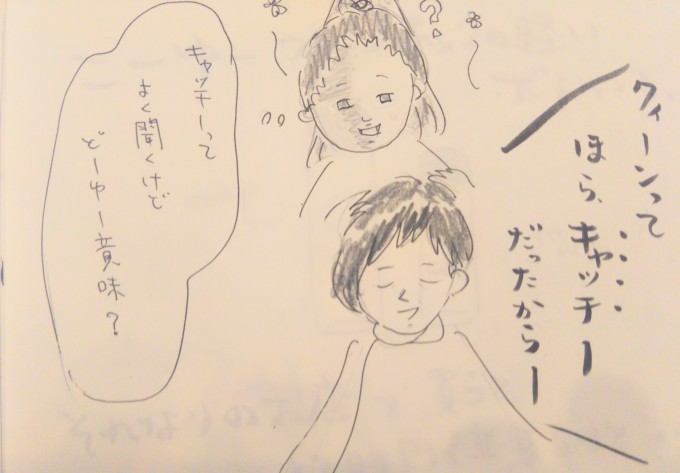 クィーンって
ほら、キャッチー
だったからー
キャッチーって
よく聞くけど
どーゆー意味?